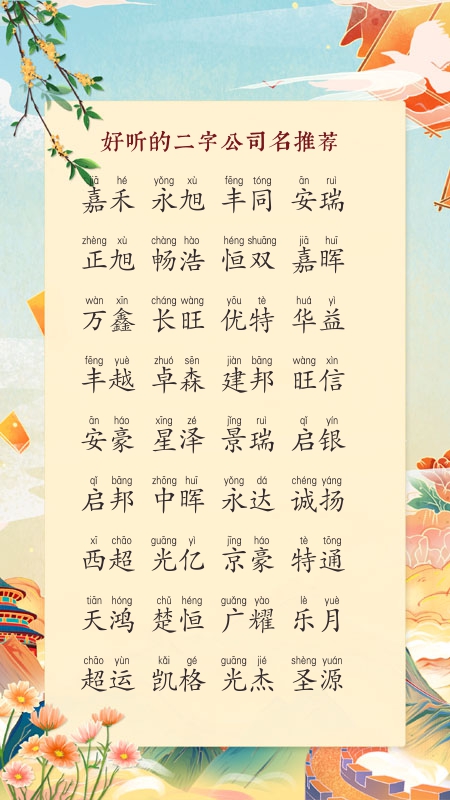 好听的二字公司名推荐
jiā hé yǒng xù fēng tóng ān ruì
嘉禾 永旭 丰同 安瑞
zhèng xù chàng hào héng shuāng jiā huī
正旭 畅浩 恒双 嘉晖
wàn xīn cháng wàng yōu tè huá yì
万鑫 长旺 优特 华益
fēng yuè zhuó sēn jiàn bāng wàng xìn
丰越 卓森 建邦 旺信
ān háo xīng zé jǐng ruì qǐ yín
安豪 星泽 景瑞 启银
qǐ bāng zhōng huī yǒng dá chéng yáng
启邦 中晖 永达 诚扬
xī chāo guāng yì jīng háo tè tōng
西超 光亿 京豪 特通
tiān hóng chǔ héng guǎng yào lè yuè
天鸿 楚恒 广耀 乐月
chāo yùn kǎi gé guāng jié shèng yuán
超运 凯格 光杰 圣源